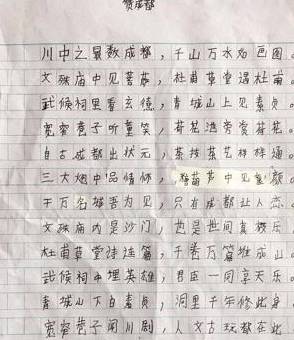 赞成都
川中之景数成都，千山万水如画图。
文殊庙中见菩萨，杜甫草堂遇杜甫。
武候祠里看玄德，青城山上见素贞。
宽窄巷子听童笑，荷花池旁赏荷花。
自古成都出状元，茶技茶艺样样通。
三大炮中品情怀，中见童颜。
千万名城吾为见，只有成都让人恋。
文殊庙内是沙门，也是世间真极乐。
杜甫草堂诗连篇，千卷万篇堆成山。
武候祠中埋英雄，君臣一同享天乐。
青城山下白素贞，洞里千年修此身。
宽窄巷子闹川剧，人文古玩都在此